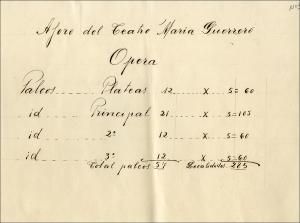 Aforo del Teatro Maria Guerrero
Opera
Palcos Plateas 12 X 5=60
id Principal 21 X 5=105
id 2º 12 X 5=60
id 3º 12 X 5=60
Total palcos 57 Localidades 285